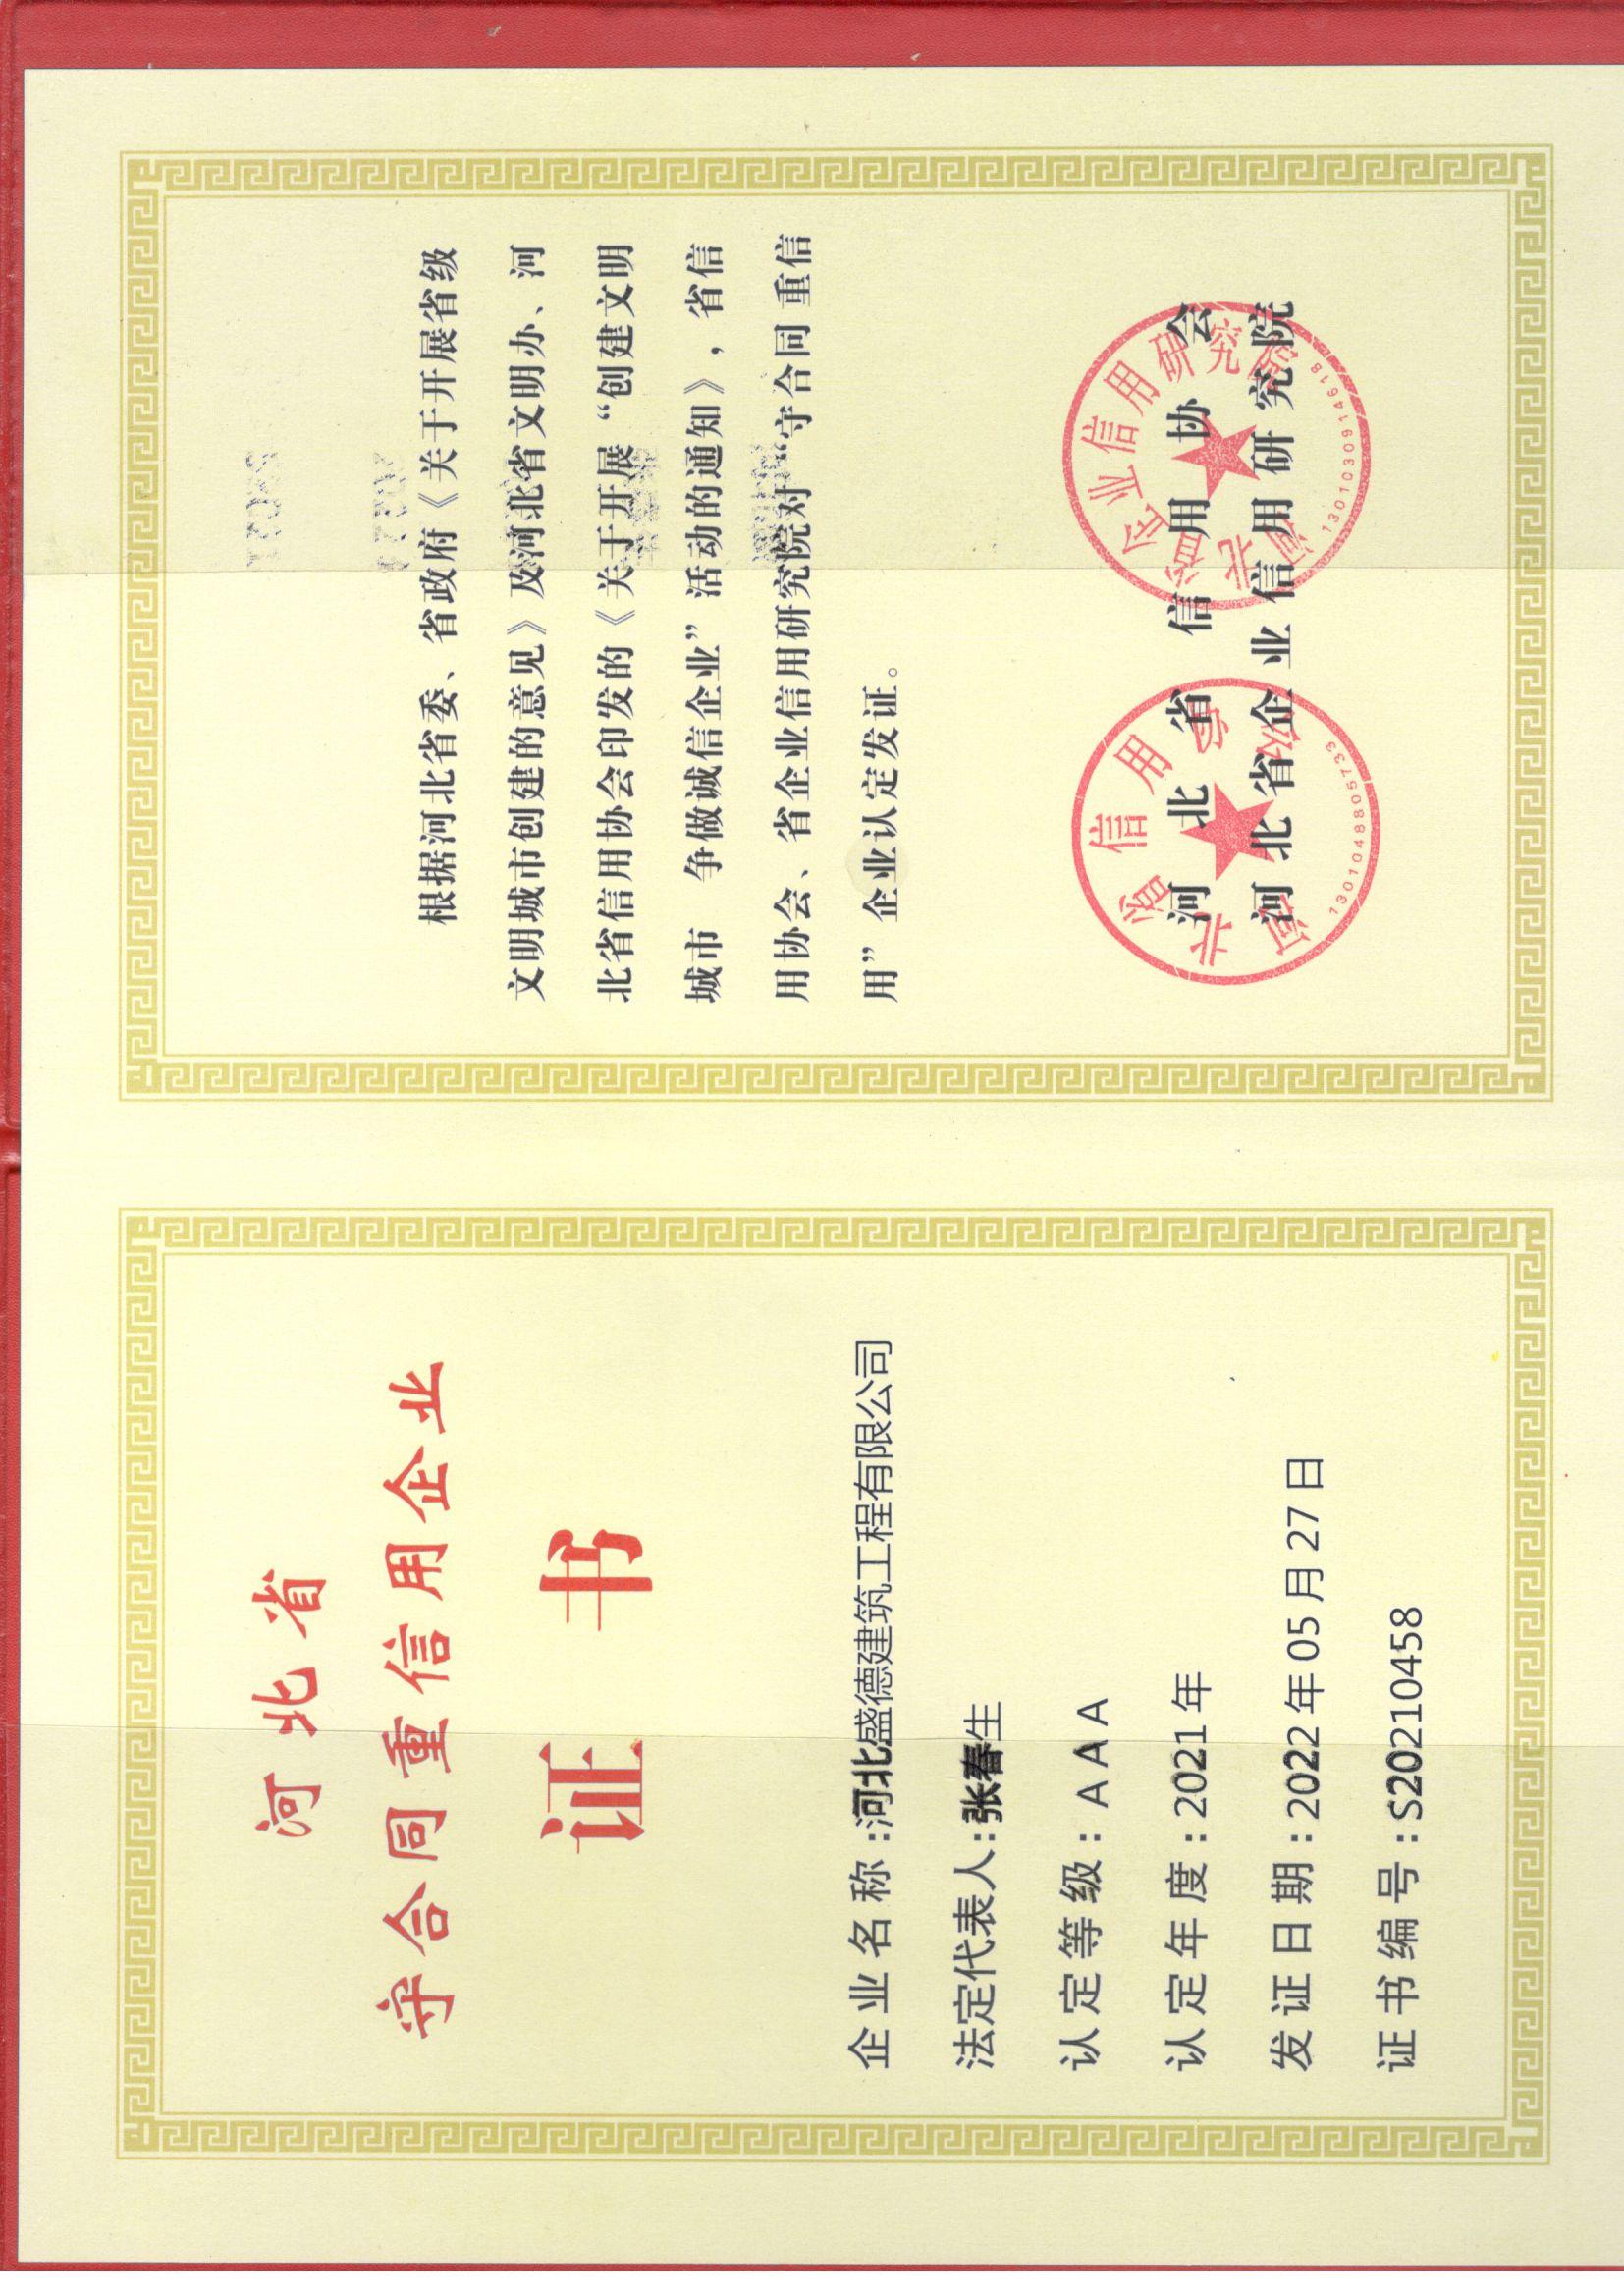 河北省
守合同重信用企业
证书
企业名称:河北盛德建筑工程有限公司
法定代表人:张春生
认定等级:AAA
认定年度:2021年
发证日期:2022年05月27日
证书编号:S20210458
根据河北省委、省政府《关于开展省级
文明城市创建的意见》及河北省文明办、河
北省信用协会印发的《关于开展“创建文明
城市 争做诚信企业”活动的通知》,省信
用协会、省企业信用研究院对“守合同重信
用”企业认定发证。
河北省信用协会
河北省企业信用研究院
河北省信用协会
1301048805733
河北省企业信用研究院
1301030914618